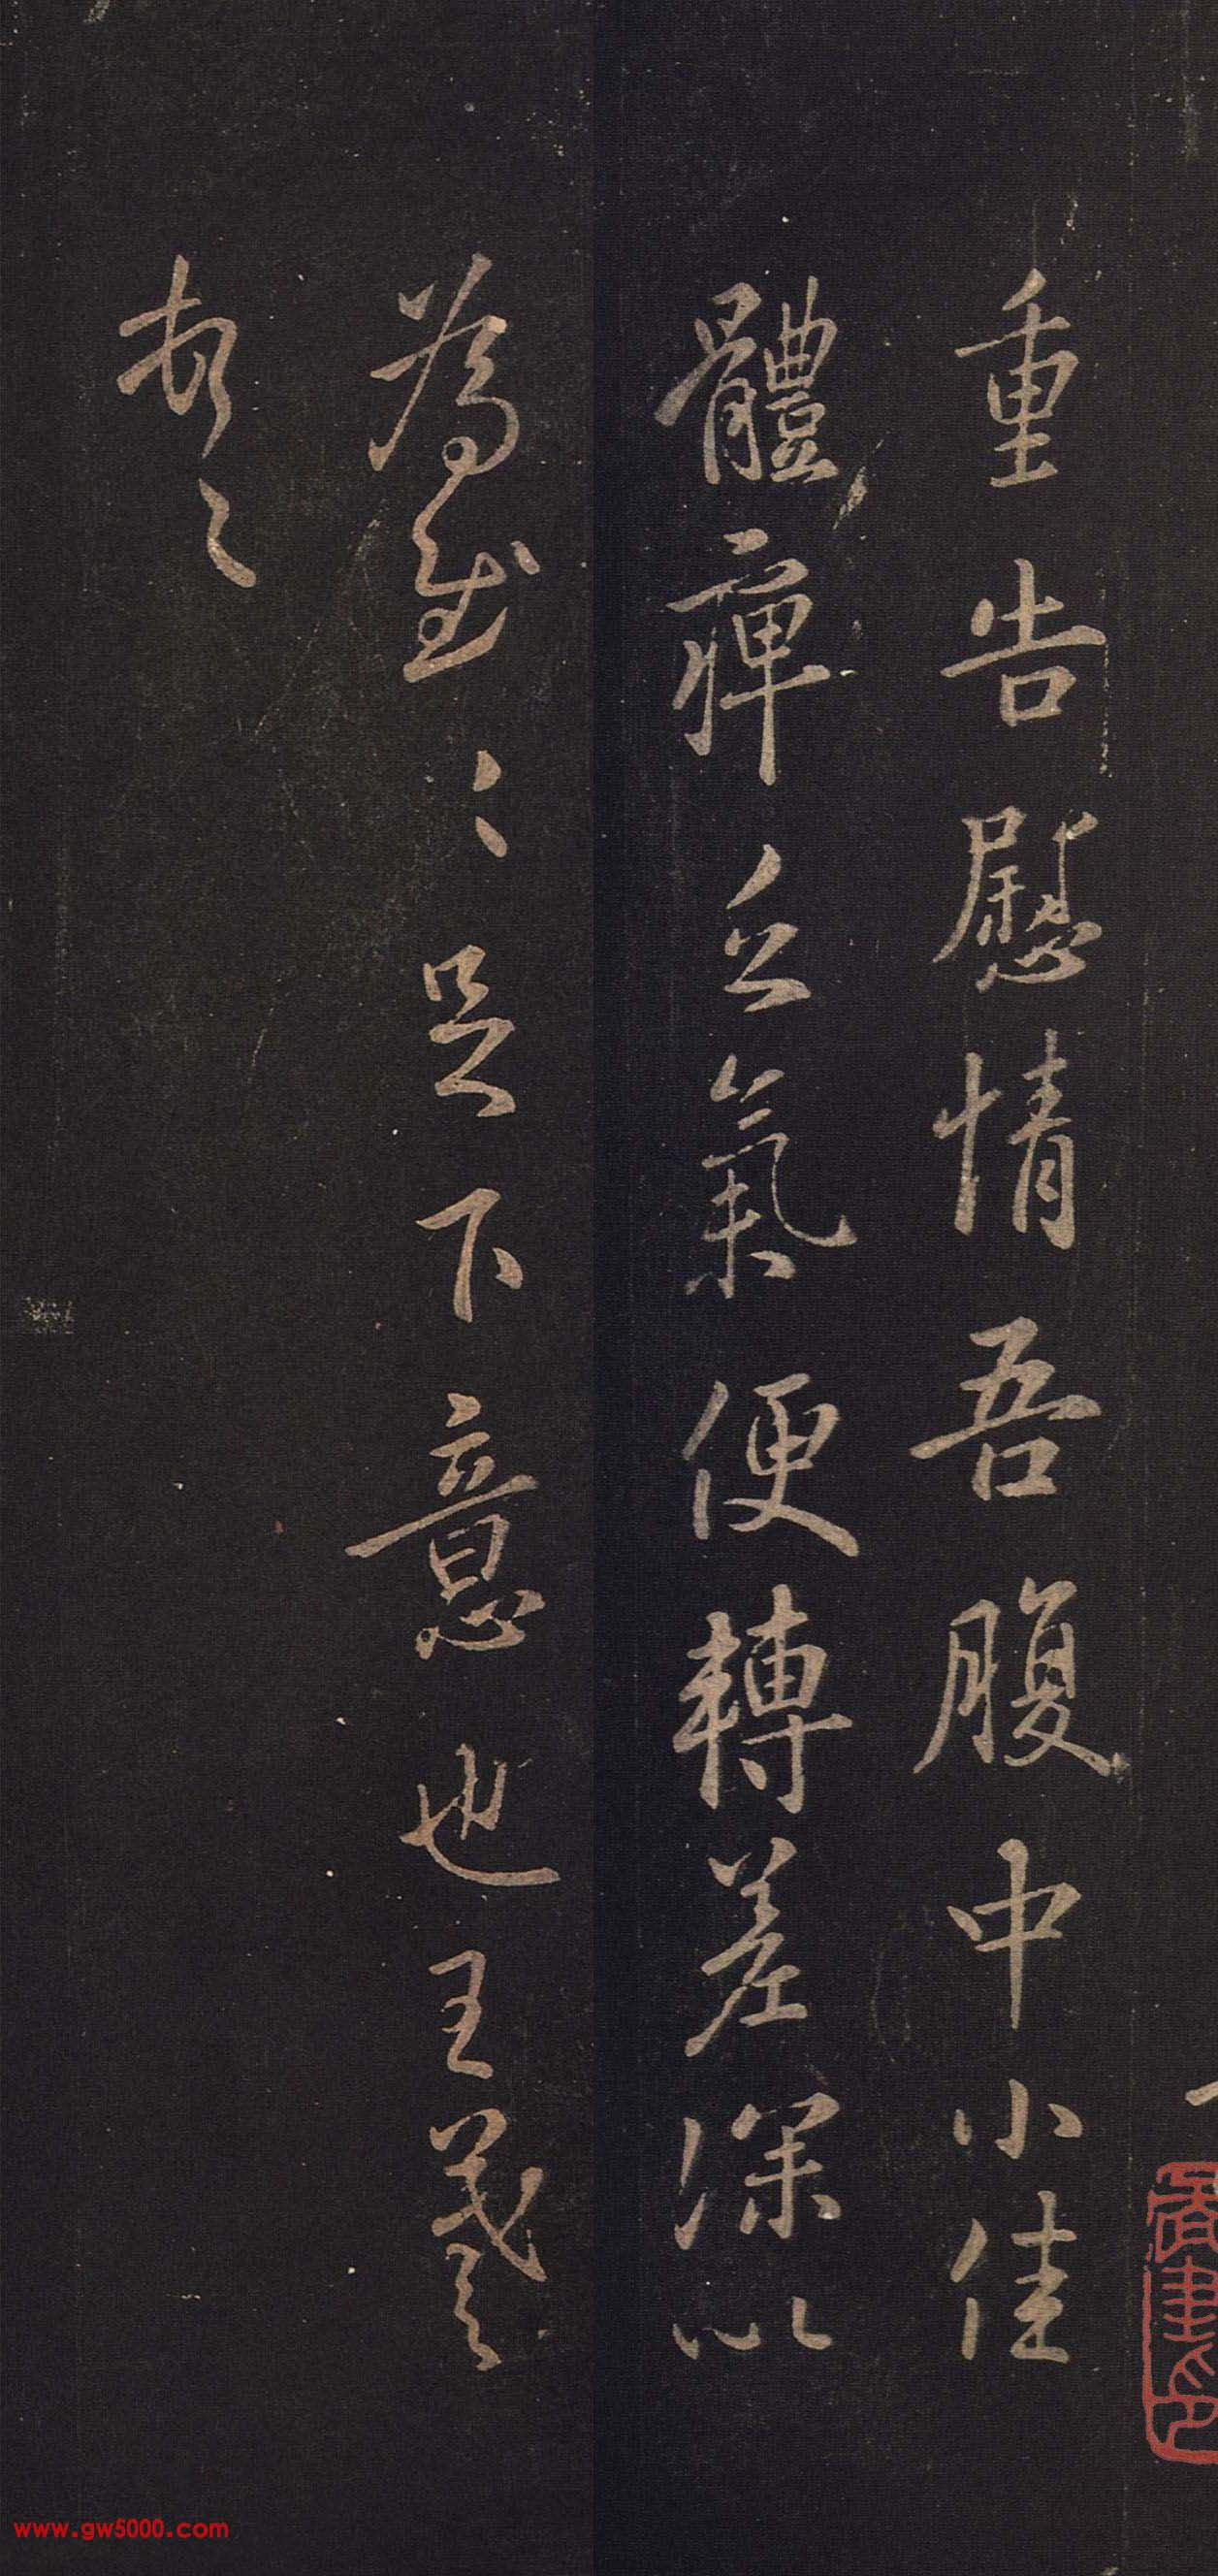 重告慰情吾腹中小佳
體痺乏氣便轉差深以
為慰〻足下意也王羲之
頓〻
www.gw5000.com